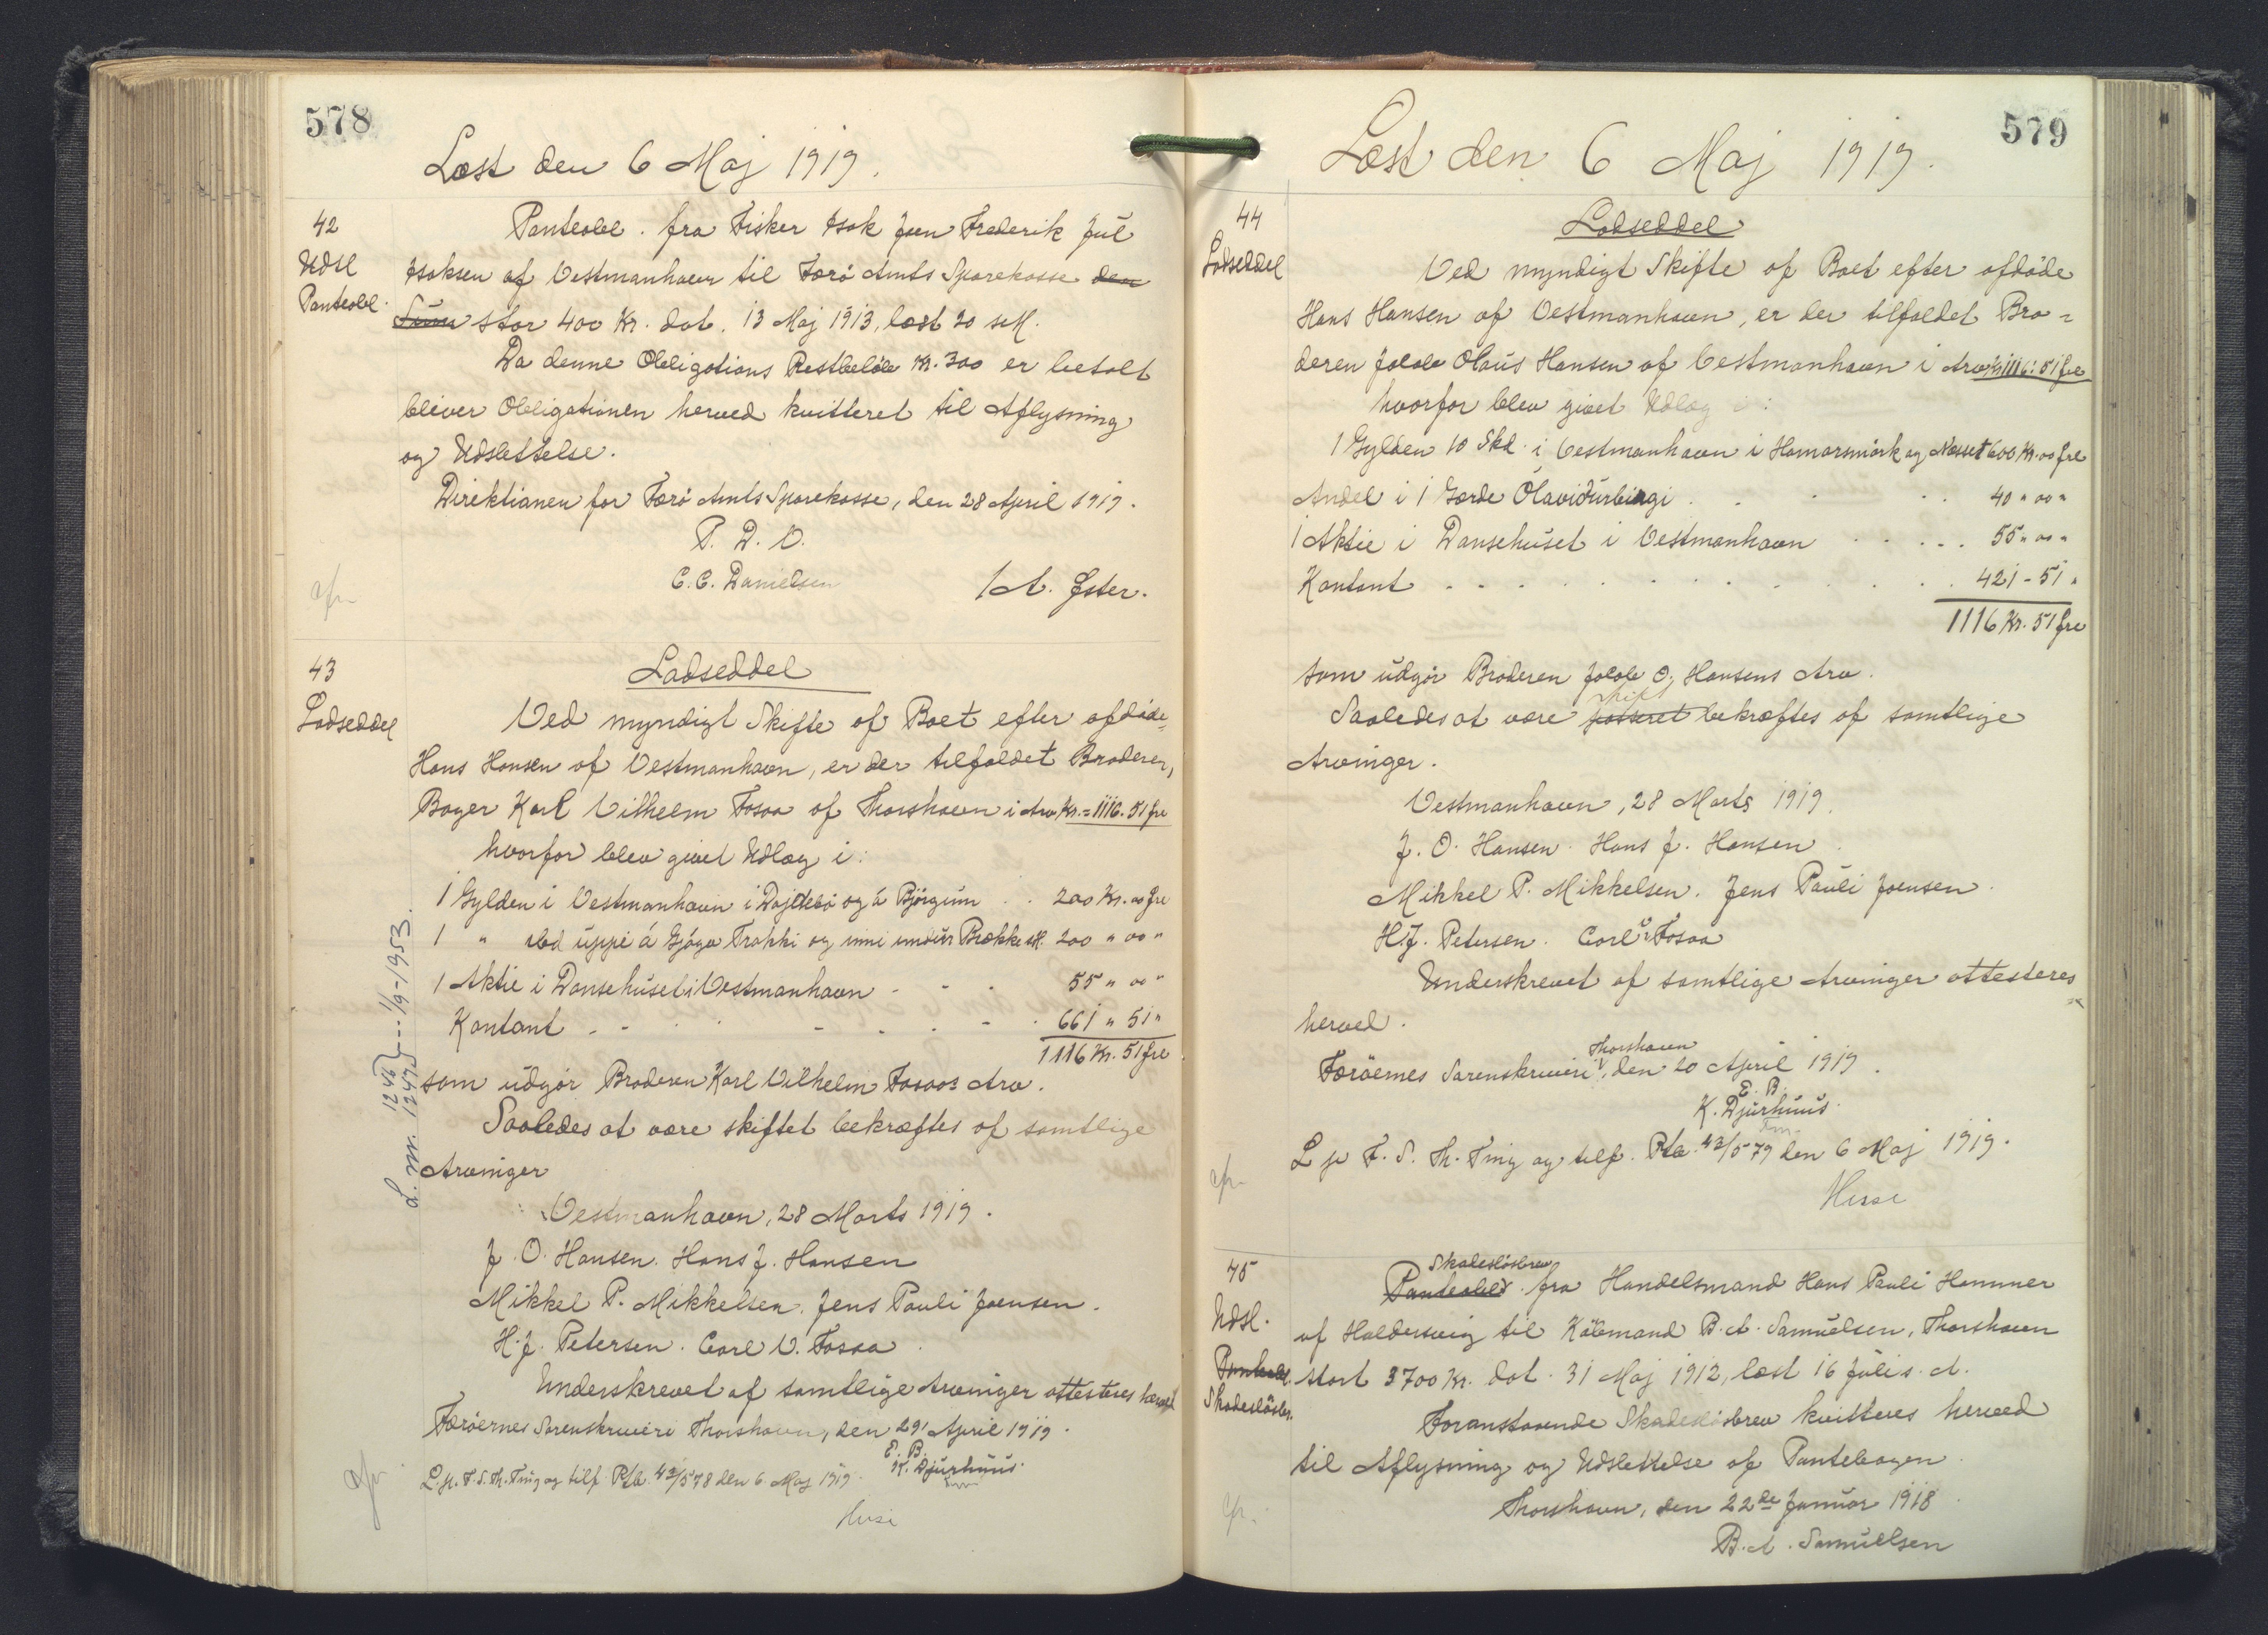 578
Læst den 6 Maj 1919.
42
Udsl
Panteobl.
Panteobl. fra Fisker Isak Joen Frederik Jul
Isaksen af Vestmanhavn til Færö Amts Sparekasse den
stor 400 Kr. dat. 13 Maj 1913, læst 20 s.M.
Da denne Obligations Restbeløb Kr. 300 er betalt
bliver Obligationen herved kvitteret til Aflysning
og Udslettelse.
Direktionen for Færö Amts Sparekasse, den 28 April 1919.
P. D. V.
C. C. Danielsen
43
Lodseddel
Lodseddel
Ved myndigt Skifte af Boet efter afdöde
Hans Hansen af Vestmanhavn, er der tilfaldet Broderen,
Bager Karl Vilhelm Fosaa af Thorshavn i Arv Kr. = 1116. 51 Øre
hvorfor blev givet Udlæg i:
1 Gylden i Vestmanhavn i og á Björgum . . 200 Kr. 00 Øre
1 " ibd uppi á Gjógv Trakki og inni undir Brekke M. 200 " 00 "
1 Aktie i Dansehuset i Vestmanhavn - - . 55 " 00 "
Kontant - - . . - - . - . 661 " 51 "
1116 Kr. 51 Øre
som udgör Broderen Karl Vilhelm Fosaas Arv.
Saaledes at være skiftet bekræftes af samtlige
Arvinger
Vestmanhavn, 28 Marts 1919.
J. O. Hansen. Hans J. Hansen
Mikkel P. Mikkelsen. Jens Pauli Joensen.
H. J. Petersen. Carl V. Fosaa.
Underskrevet af samtlige Arvinger attesteres herved
Færöernes Sorenskriveri Thorshavn, den 29 April 1919.
E. B.
K. Djurhuus.
L. p. F. S. Th. Ting og tilf. Ptb. 43/578 den 6 Maj 1919.
L. nr. 1246 1247 } -- 1/9-1953.
579
Læst den 6 Maj 1919.
44
Lodseddel
Lodseddel
Ved myndigt Skifte af Boet efter afdöde
Hans Hansen af Vestmanhavn, er der tilfaldet Bro=
deren Jakob Olaus Hansen af Vestmanhavn i Arv Kr 1116: 51 Øre
hvorfor blev givet Udlæg i:
1 Gylden 10 Skd. i Vestmanhavn i Hamarsmörk og Nesset 600 Kr. 00 Øre
Andel i 1 Gærde Ólaviðurbirgi . . . . . 40 " 00 "
1 Aktie i Dansehuset i Vestmanhavn . . . . . 55 " 00 "
Kontant - - - . . . . . . . 421 - 51 "
1116 Kr. 51 Øre
som udgör Broderen Jakob O. Hansens Arv.
skift
Saaledes at være passeret bekræftes af samtlige
Arvinger.
Vestmanhavn, 28 Marts 1919.
J. O. Hansen. Hans J. Hansen.
Mikkel P. Mikkelsen. Jens Pauli Joensen.
H. J. Petersen. Carl V. Fosaa
Underskrevet af samtlige Arvinger attesteres
herved.
Thorshavn
Færöernes Sorenskriveri, den 20 April 1919.
E. B.
K. Djurhuus.
L p F. S. Th. Ting og tilf. Ptb. 43/579 den 6 Maj 1919.
45
Udsl.
Panteobl.
Skadeslösbr.
Skadeslösbrev
Panteobl. fra Handelsmand Hans Pauli Hammer
af Haldersvig til Købmand B. A. Samuelsen, Thorshavn
stort 3700 Kr. dat. 31 Maj 1912, læst 16 Juli s. A.
Foranstaaende Skadeslösbrev kvitteres herved
til Aflysning og Udslettelse af Pantebogen.
Thorshavn, den 22de Januar 1918
B. A. Samuelsen